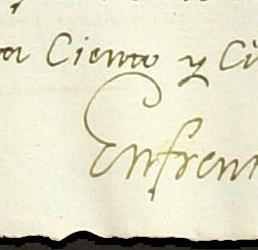 Ciento y Ci
Enfren